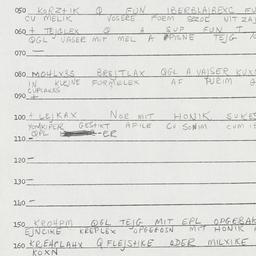 050 KORZTIK Q FUN IBERBLAIBEXC FU
CU MELIK VOSERE FORM BROE NIT ZAJ
060 + TEIGLEX Q A SUP FUN T
QGL VASER MIT MEL A PISNE TEJG
070
080 MOHLXSS BREJTLAX QGL A VAISER KUXN
IN KLEJNE FORMELEX AF PURIM
090 CUPLAXIS
100 + LEJKAX NOR MIT HONIK SUKES
YOMKIPER GESTIKT AFILE CU SONIM CUM
110 QPL ER
120
130
140
150 KROHPM QGL TEJG MIT EPL OPGEBAK
EJNCIKE KREPLEX OPGEGOSN MIT HONIK
160 KREHPLAHX Q FLEJSHIKE ODER MILXIKE
KOXN